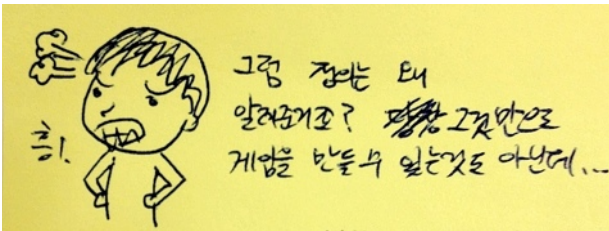 그럼 정의는 왜
알려준거죠? 그것만으로
게임을 만들 수 있는것도 아닌데...
흥!